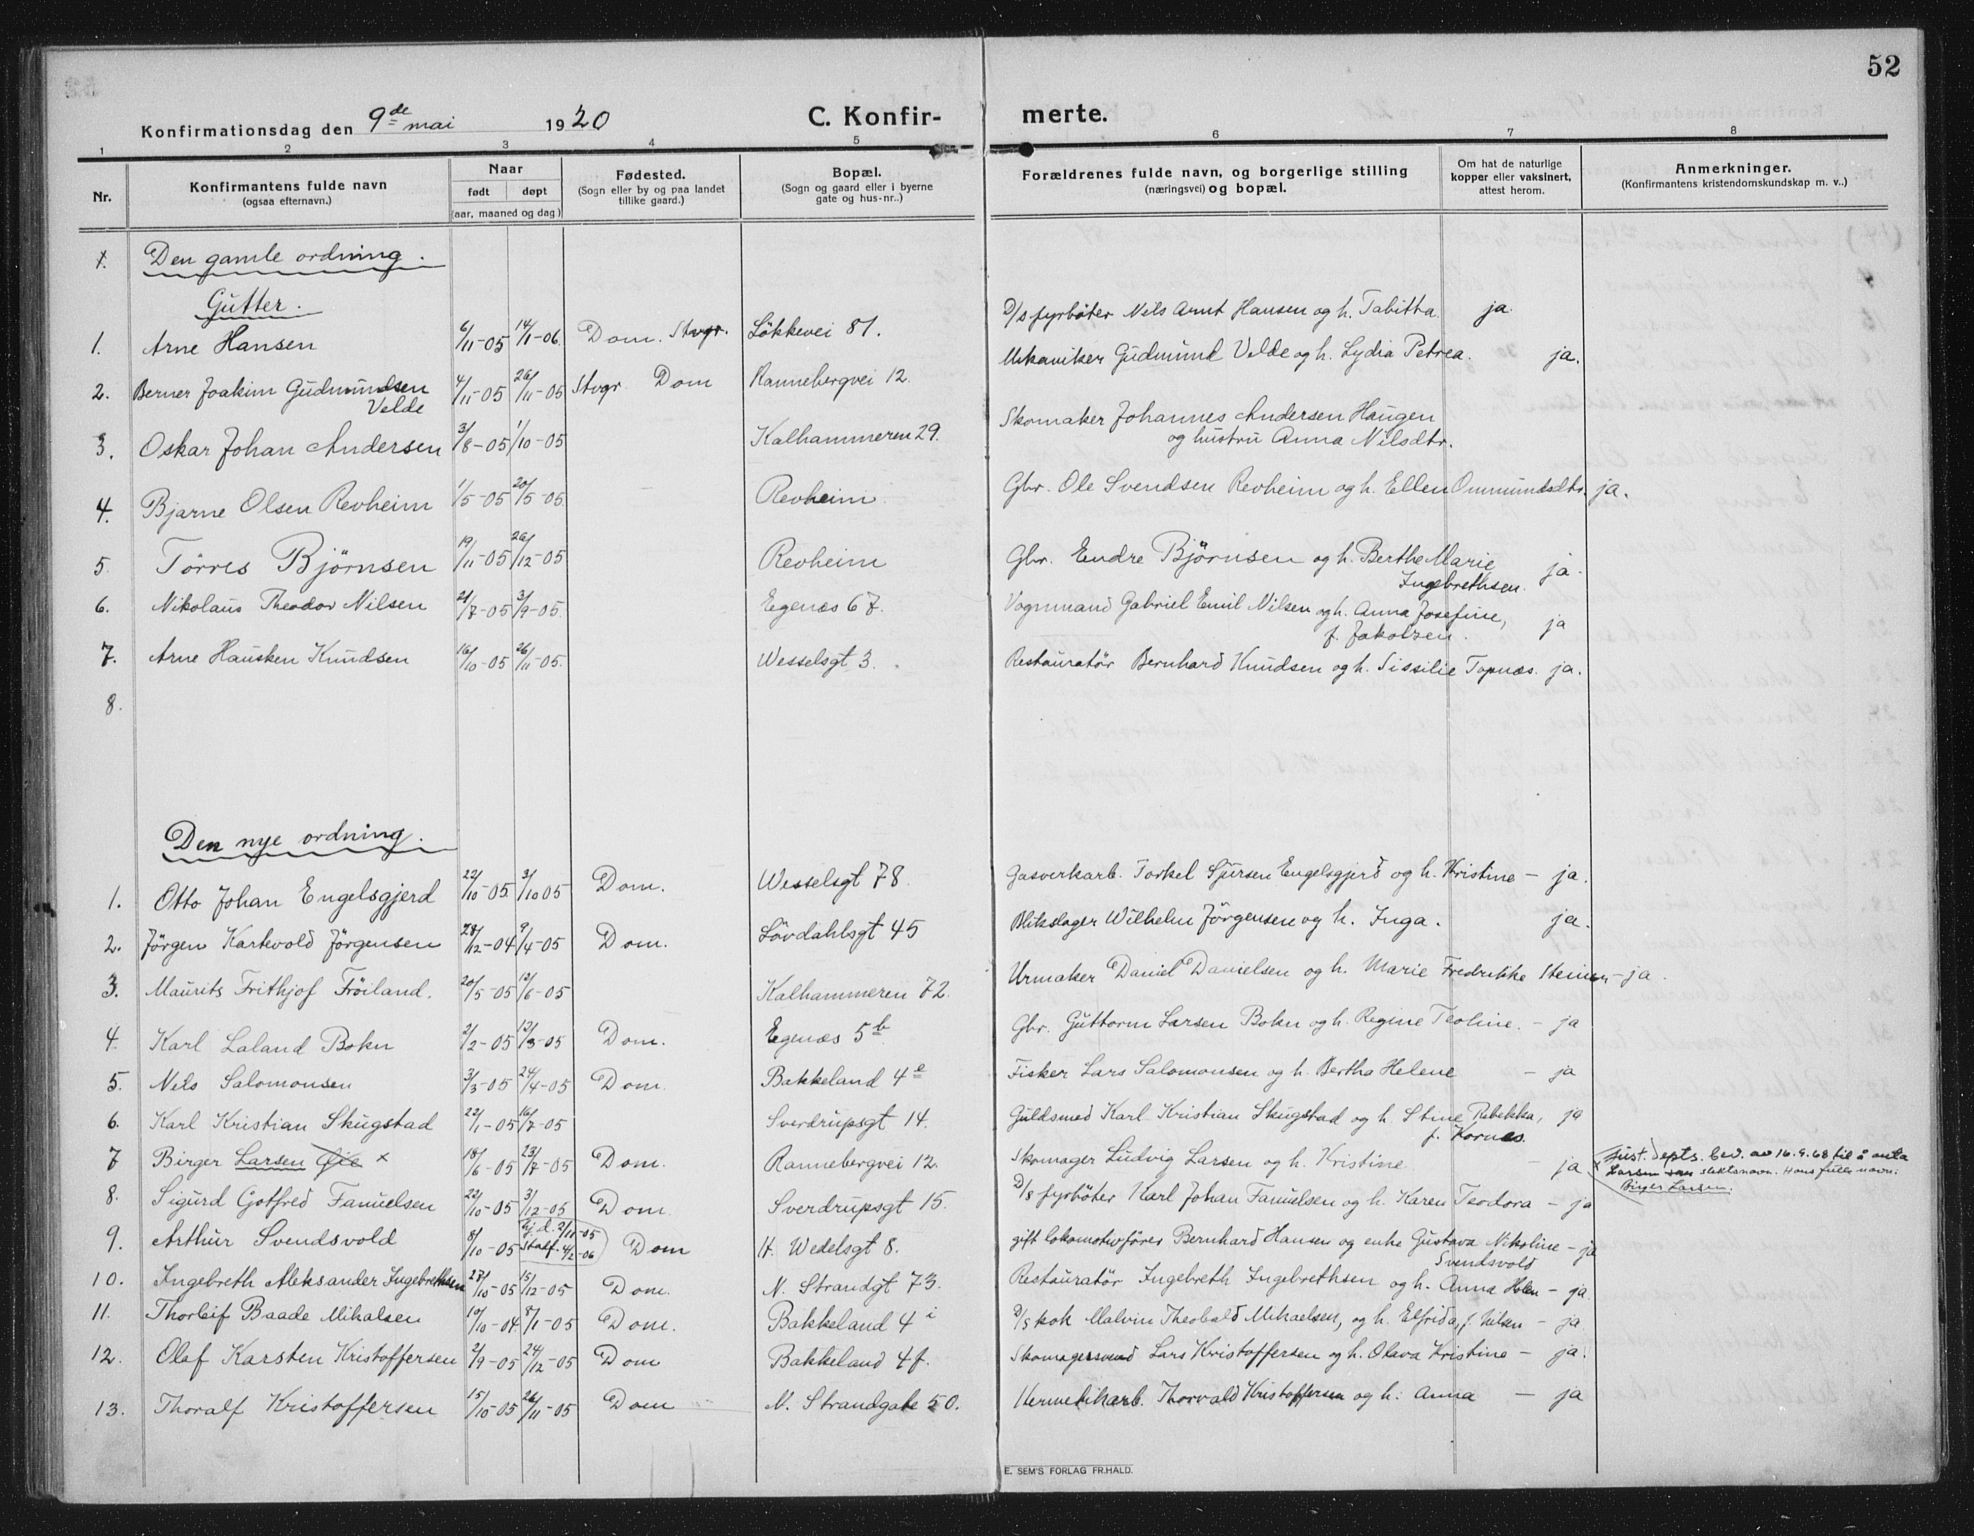 52
Konfirmationsdag den 9de mai 1920
C. Konfirmerte.
1 2 3 4 5 6 7 8
Nr.
Konfirmantens fulde navn
(ogsaa efternavn.)
Naar
født døpt
(aar, maaned og dag)
Fødested.
(Sogn eller by og paa landet
tillike gaard.)
Bopæl.
(Sogn og gaard eller i byerne
gate og hus-nr.)
Forældrenes fulde navn, og borgerlige stilling
(næringsvei) og bopæl.
Om hat de naturlige
kopper eller vaksinert,
attest herom.
Anmerkninger.
(Konfirmantens kristendomskundskap m. v..)
Den gamle ordning.
Gutter.
1. Arne Hansen 6/11-05 14/1-06 Dom. Stvgr. Løkkevei 81. D/s fyrbøter Nils Arnt Hansen og h. Tabitta. ja.
2. Berner Joakim Gudmundsen Velde 4/11-05 26/11-05 Stvgr Dom Rannebergvei 12. Mekaniker Gudmund Velde og h. Lydia Petrea. ja.
3. Oskar Johan Andersen 3/8-05 1/10-05 Kalhammeren 29. Skomaker Johannes Andersen Haugen
og hustru Anna Nilsdtr.
4. Bjarne Olsen Revheim 1/5-05 20/5-05 Revheim Gbr. Ole Svendsen Revheim og h. Ellen Ommundsdtr. ja.
5. Tørres Bjørnsen 19/11-05 26/12-05 Revheim Gbr. Endre Bjørnsen og h. Berthe Marie
Ingebrethsen. ja.
6. Nikolaus Theodor Nilsen 21/7-05 3/9-05. Egenæs 67. Vognmand Gabriel Emil Nilsen og h. Anna Josefine,
f. Jakobsen. ja
7. Arne Hausken Knudsen 16/10-05 26/11-05. Wesselsgt 3. Restauratør Bernhard Knudsen og h. Sissilie Topnæs. ja.
8.
Den nye ordning.
1. Otto Johan Engelsgjerd 22/10-05 3/10 05 Dom. Wesselsgt 78. Gasverkarb. Torkel Sjursen Engelsgjerd og h. Kristine - ja.
2. Jørgen Kartevold Jørgensen 28/12-04 9/4-05 Dom. Løvdahlsgt 45 Blikslager Wilhelm Jörgensen og h. Inga. ja.
3. Maurits Frithjof Fröiland. 20/5-05 12/6-05 Kalhammeren 72. Urmaker Daniel Danielsen og h. Marie Fredrikke - ja.
4. Karl Laland Bokn 2/2-05 12/3-05 Dom. Egenæs 5b Gbr. Guttorm Larsen Bokn og h. Regine Teoline. - ja
5. Nils Salomonsen 3/3-05 24/4-05 Dom. Bakkeland 4e Fisker Lars Salomonsen og h. Bertha Helene - ja
6. Karl Kristian Skugstad 22/1-05 16/7-05 Sverdrupsgt 14. Guldsmed Karl Kristian Skugstad og h. Stine Rebekka,
f. Kornes. ja
7 Birger Larsen Øie × 18/6-05 23/7-05 Dom. Rannebergvei 12. Skomager Ludvig Larsen og h. Kristine. - ja × Just. depts. bev. av 16.9.68 til å anta
Larsen som slektsnavn. Hans fulle navn:
Birger Larsen.
8. Sigurd Gotfred Fanuelsen 22/10-05 3/12-05 Dom. Sverdrupsgt 15. D/s fyrbøter Karl Johan Fanuelsen og h. Karen Teodora - ja
9. Arthur Svendsvold 8/10-05 Hj. d. 2/11-05
Stadf. 4/2-06 Dom H. Wedelsgt 8. gift lokomotivfører Bernhard Hansen og enke Gustava Nikoline
Svendsvold - ja
10. Ingebreth Aleksander Ingebrethsen 27/10-05 15/12-05 Dom. N. Strandgt 73. Restauratør Ingebreth Ingebrethsen og h. Anna Helen - ja.
11. Thorleif Baade Mikalsen 10/10-04 8/1-05 Dom. Bakkeland 4i D/s kok Malvin Theobald Mikaelsen, og h. Elfrida, f. Nilsen - ja.
12. Olaf Karsten Kristoffersen 2/9-05 24/12-05 Dom Bakkeland 4f. Skomagersvend Lars Kristoffersen og h. Olava Kristine - ja.
13. Thoralf Kristoffersen 15/10-05 26/11-05 Dom N. Strandgate 50. Hermetikarb. Thorvald Kristoffersen og h. Anna - ja
E. SEM'S FORLAG FR.HALD.